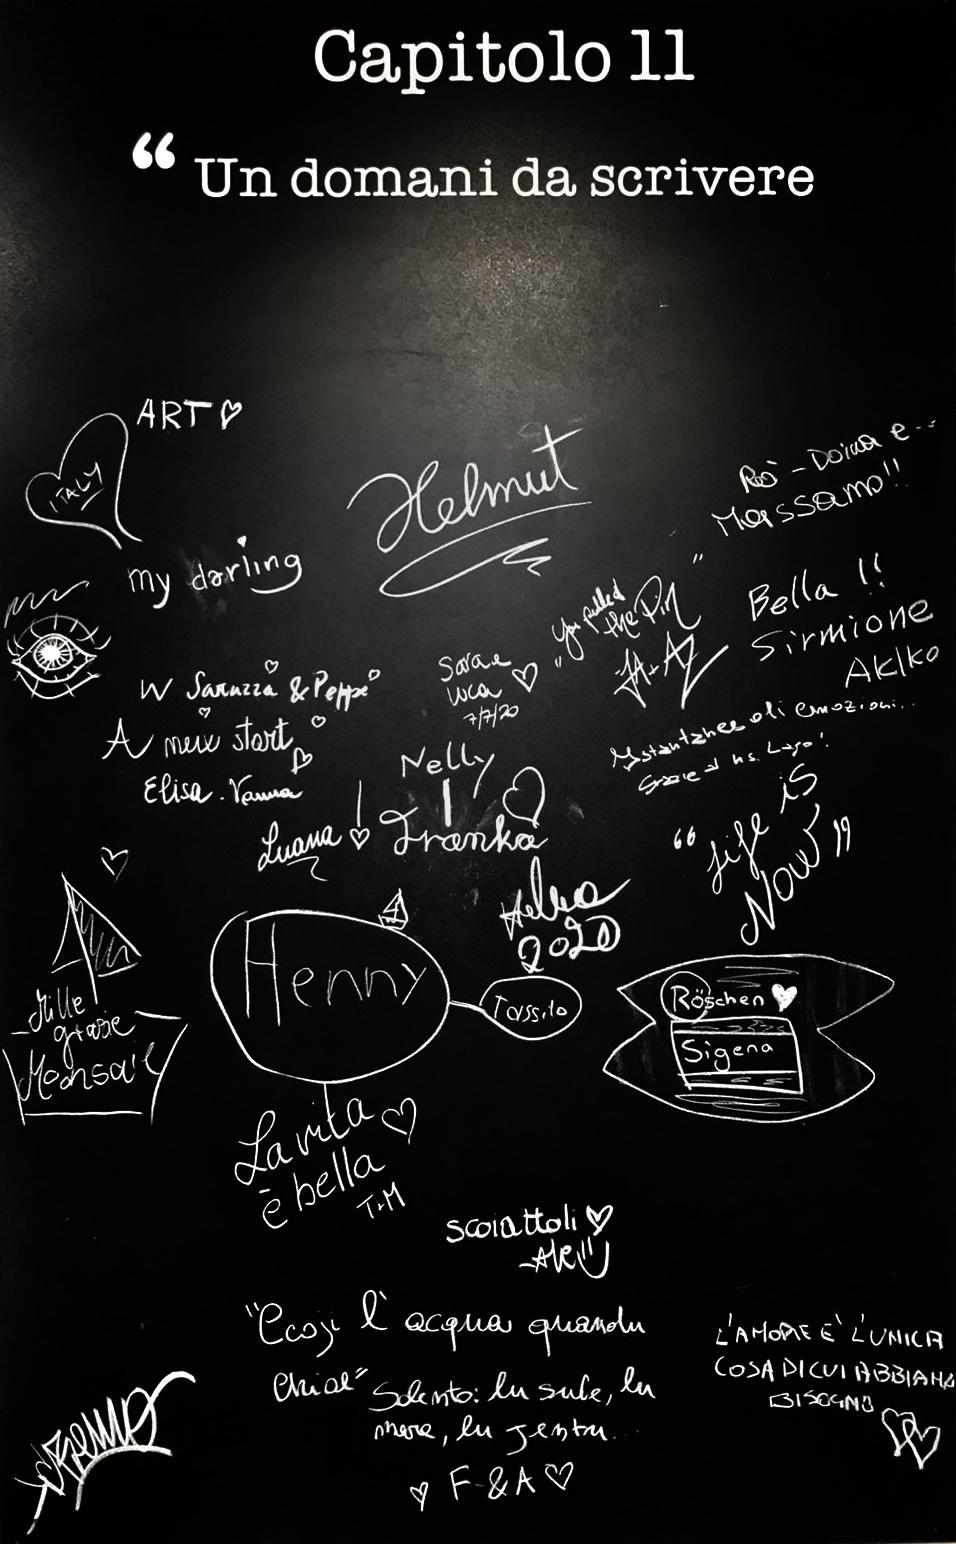 Capitolo 11
“ Un domani da scrivere
ART
ITALY
Helmut
my darling
Doina e...
Massamo"!!
"You pulled
the Pin"
Bella !!
Sirmione
AkIko
W Saruzza & Peppe
A new start
Elisa. Vanna
Sara e
Luca
7/7/20
Istantanee di emozioni...
Grazie al ns. Lago!
Nelly
Luana
Franka
“ Life is
Now "
2020
Henny
Tassilo
Röschen
Sigena
Mille
grazie
La vita
è bella
T+M
scoiattoli
-Ale
l'acqua quandu
Salento: lu sule, lu
mare, lu jentu...
F & A
L'AMORE E' L'UNICA
COSA DI CUI ABBIAMO
BISOGNO